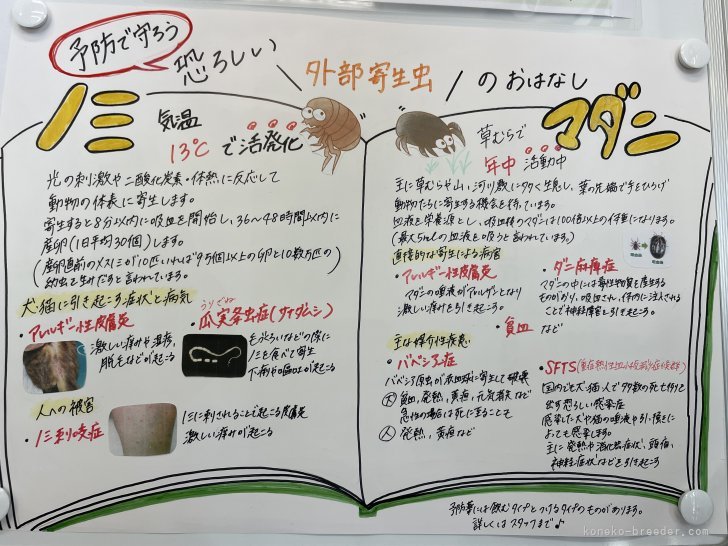 予防で守ろう
恐ろしい 外部寄生虫 のおはなし
ノミ
気温
13℃で活発化
光の刺激や二酸化炭素・体熱に反応して
動物の体表に寄生します。
寄生すると8分以内に吸血を開始し、36〜48時間以内に
産卵(1日平均30個)します。
(産卵直前のメスノミが10匹いれば9万個以上の卵と10数万匹の
幼虫を生みだすと言われています。
犬・猫に引き起こす症状と病気
・アレルギー性皮膚炎
激しい痒みや湿疹、
脱毛などが起こる
うりざね
・瓜実条虫症(サナダムシ)
毛づくろいなどの際に
ノミを食べて寄生
下痢や嘔吐が起こる
人への被害
・ノミ刺咬症
ノミに刺されることで起こる皮膚炎
激しい痒みが起こる
マダニ
草むらで
年中活動中
主に草むらや山、河川敷に多く生息し、葉の先端で手をひろげ
動物たちに寄生する機会を待っています。
血液を栄養源とし、吸血後のマダニは100倍以上の体重になります。
(最大5mlの血液を吸うと言われています。)
直接的な寄生による病害
・アレルギー性皮膚炎
マダニの唾液がアレルゲンとなり
激しい痒みを引き起こす。
・ダニ麻痺症
マダニの中には毒性物質を産生する
ものがおり、吸血され、体内に注入される
ことで神経障害を引き起こす。
・貧血 など
主な媒介性疾患
・バベシア症
バベシア原虫が赤血球に寄生して破壊
犬 貧血、発熱、黄疸、元気消失など
急性の場合は死に至ることも
人 発熱、黄疸など
・SFTS(重症熱性血小板減少症候群)
国内でも犬・猫・人で多数の死亡例を
出す恐ろしい感染症
感染した犬や猫の唾液や引っ掻きに
よっても感染します。
主に発熱や消化器症状、頭痛、
神経症状などを引き起こす
予防薬には飲むタイプとつけるタイプのものがあります。
詳しくはスタッフまで♪
koneko-breeder.com